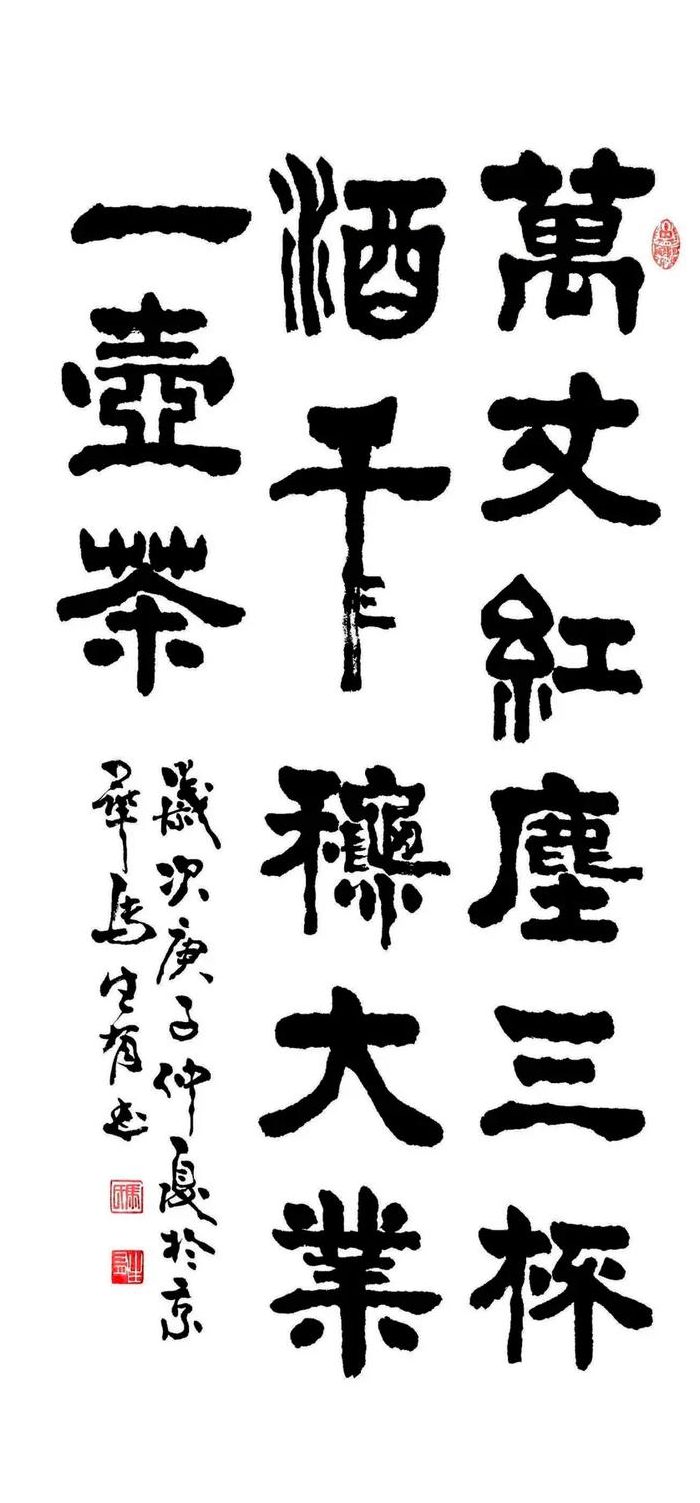 萬丈紅塵三杯
酒千龝大業
一壺茶
歲次庚子仲夏於京
華馬生有書